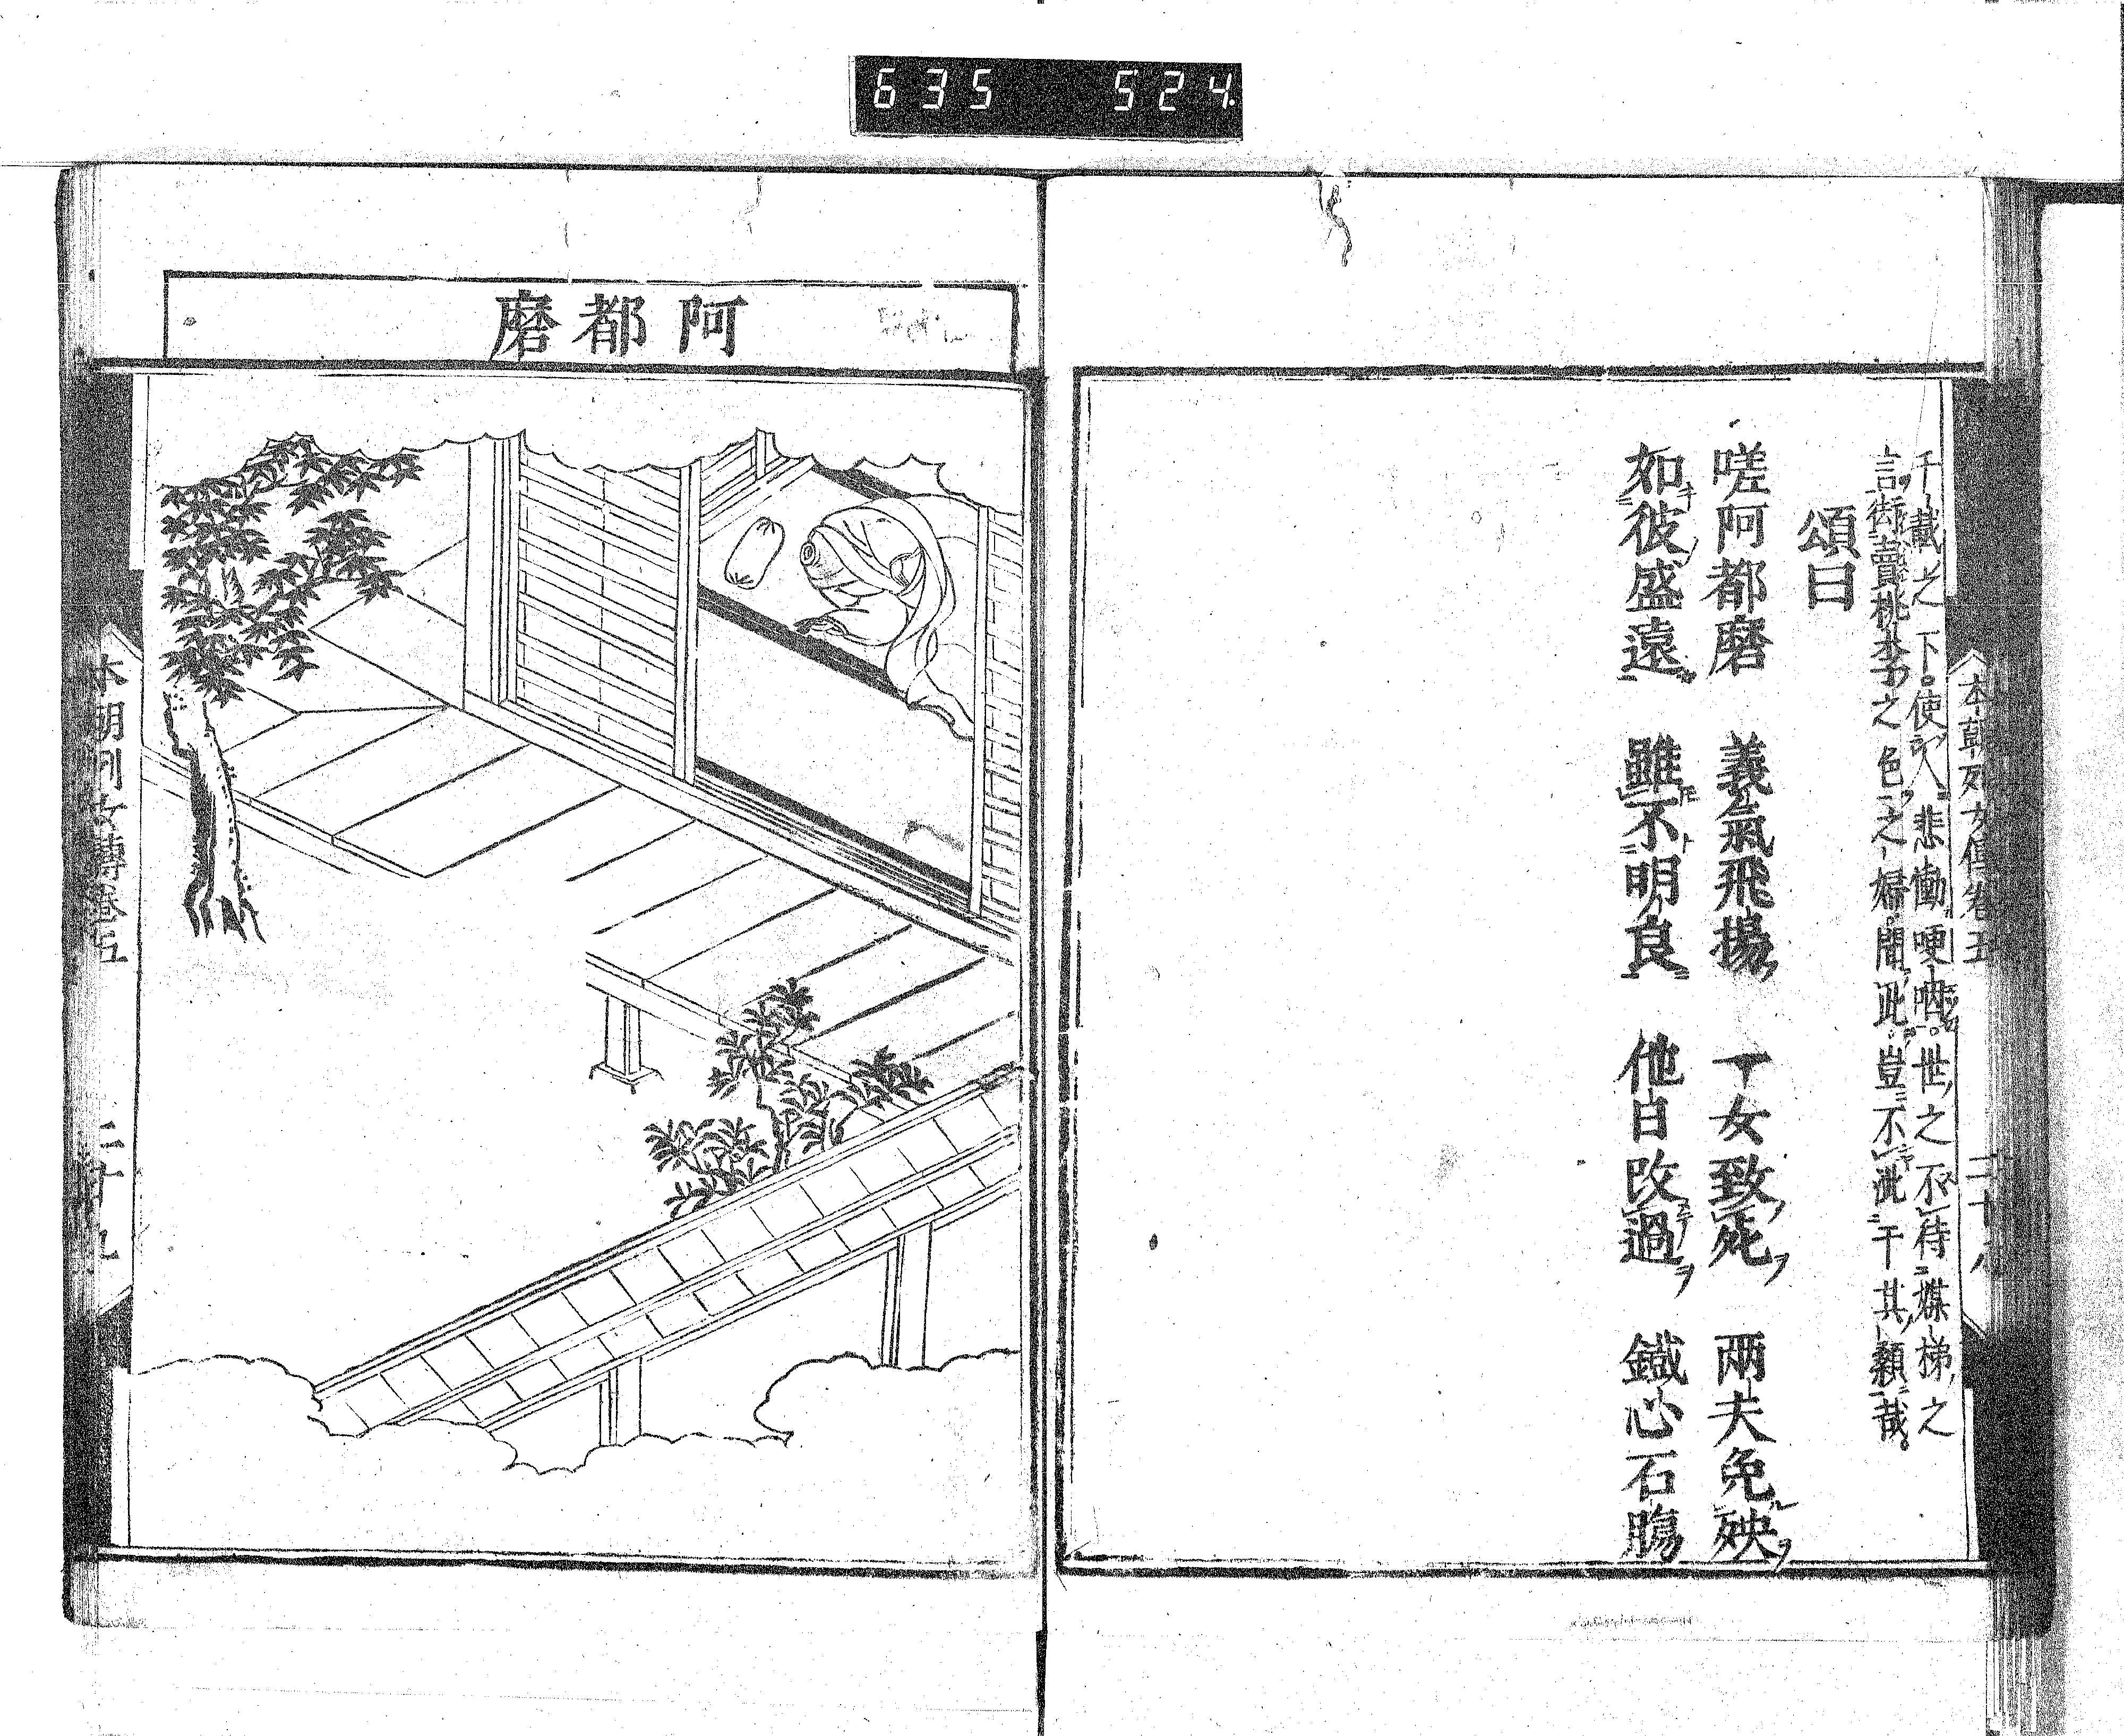 635 524
本朝列女傳卷五 二十八
千載之下使人悲慟哽咽世之不待媒梯之
言衒賣桃李之色之婦聞此豈不泚于其顙哉
頌曰
嗟阿都磨 義氣飛揚 一女致死 兩夫免殃
如彼盛遠 雖不明良 他日改過 鐵心石腸
阿都磨
本朝列女傳卷五 二十九